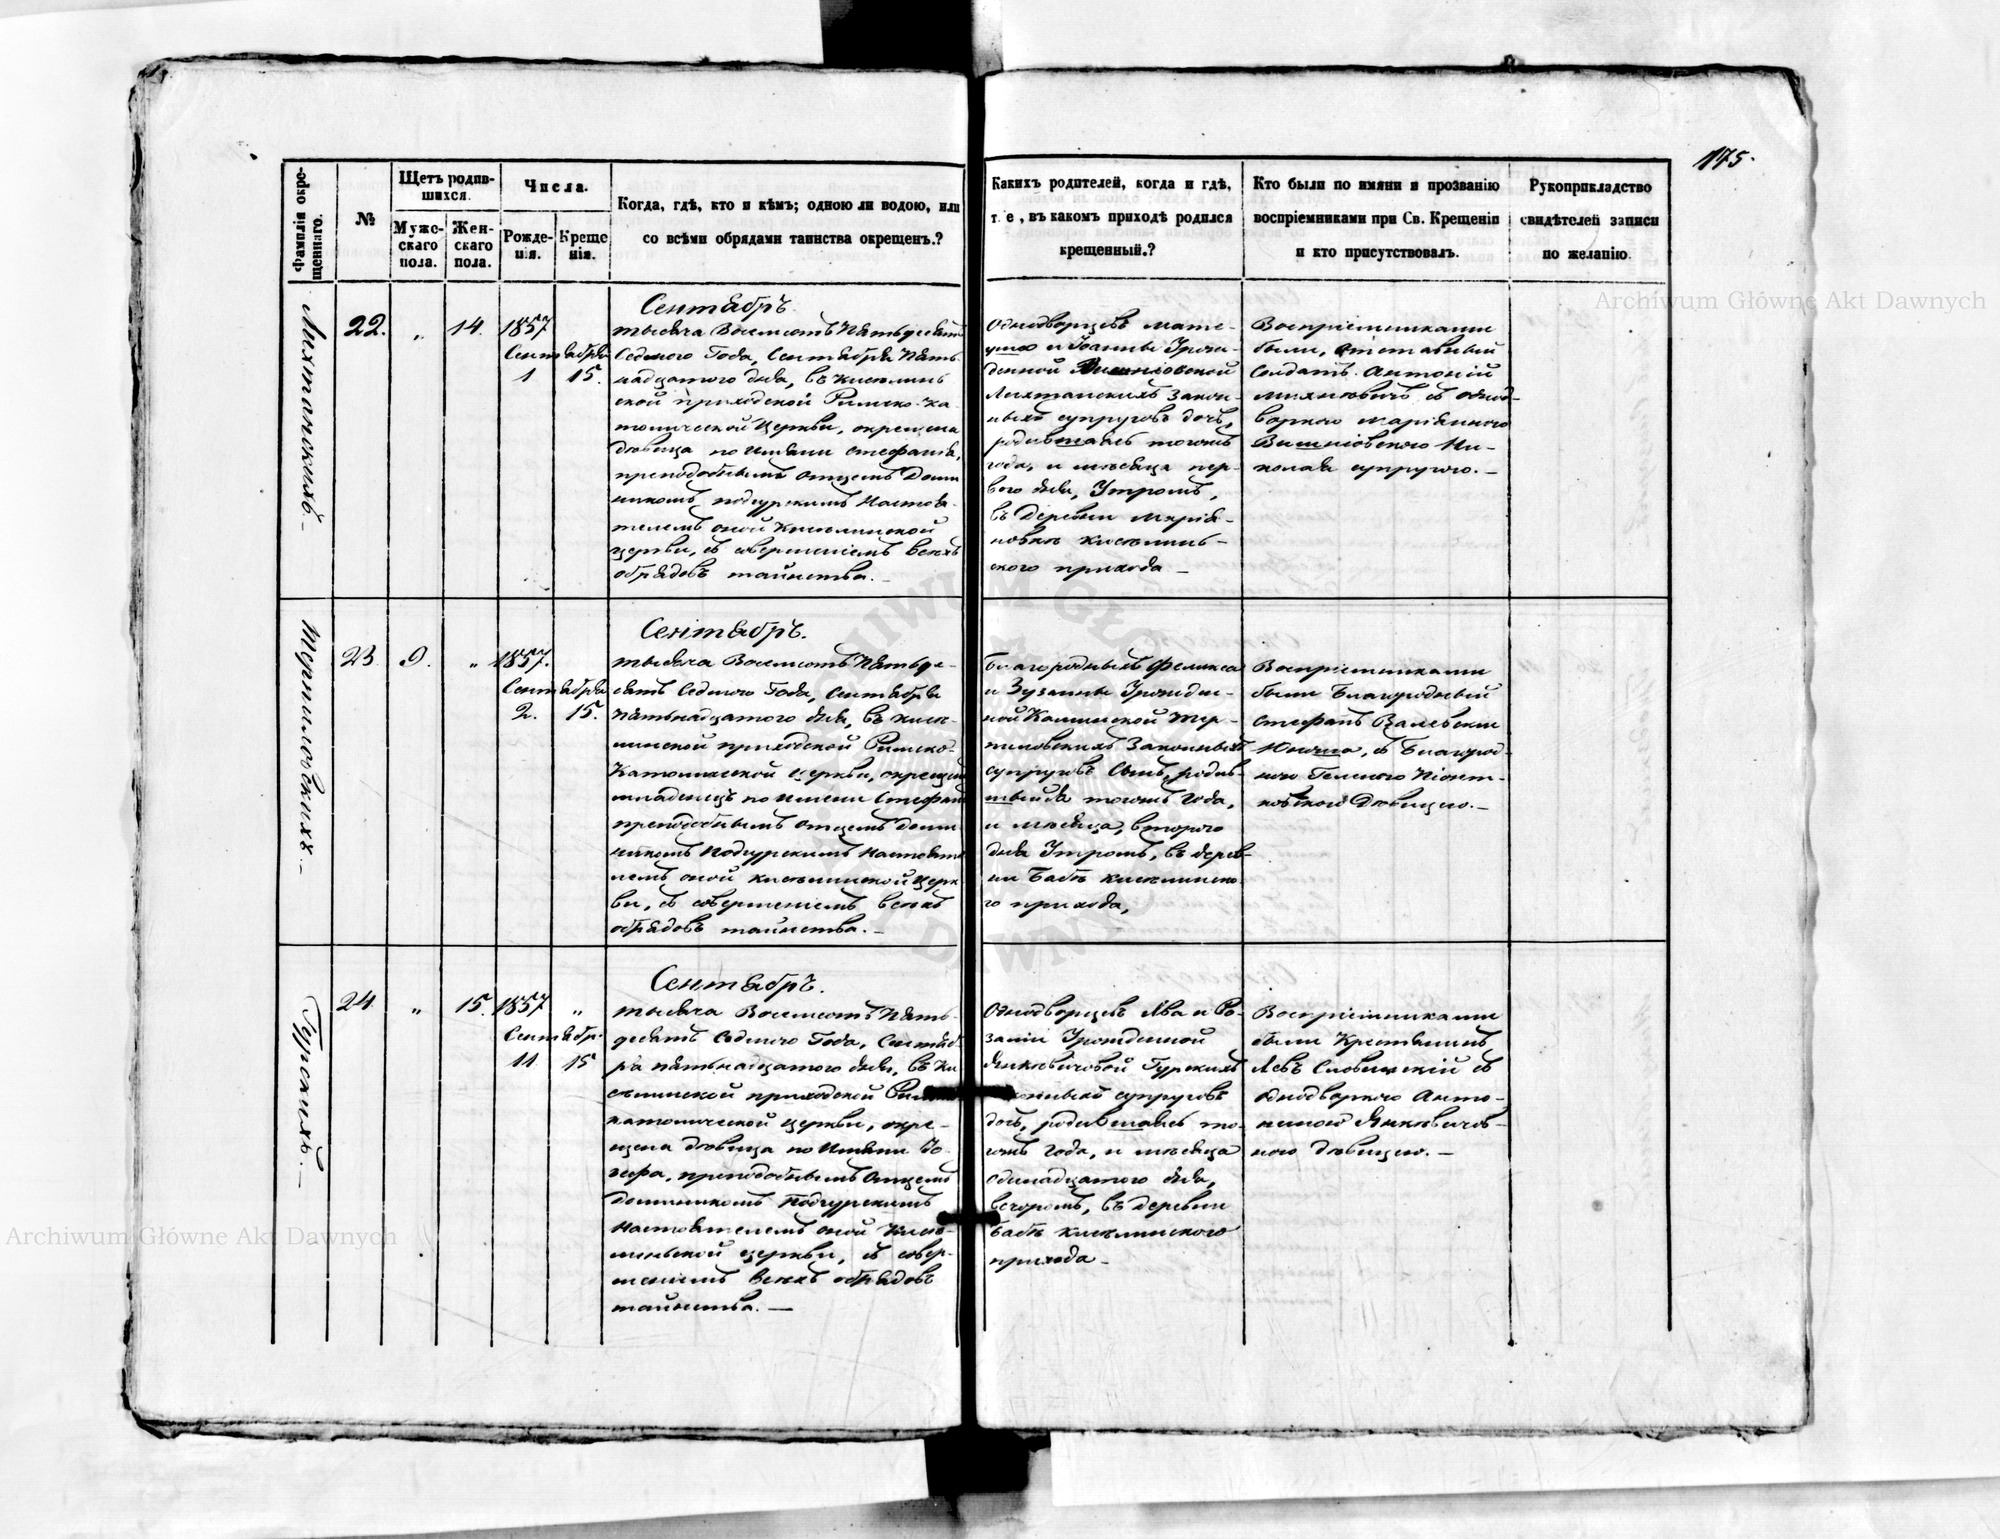 175.
Фамилія окре-
щеннаго.
№
Щетъ родив-
шихся.
Мужес-
скаго
пола.
Жен-
скаго
пола.
Числа.
Рожде-
нія.
Креще
нія.
Когда, гдѣ, кто и кѣмъ; одною ли водою, или
со всѣми обрядами таинства окрещенъ.?
Какихъ родителей, когда и гдѣ,
т. е, въ какомъ приходѣ родился
крещенный.?
Кто были по имяни и прозванію
воспріемниками при Св. Крещеніи
и кто присутствовалъ.
Рукоприкладство
свидѣтелей записи
по желанію.
Лихтанскихъ.
22.
„
14.
1857
Сентября
1 15.
Сентябрь.
тысяча Восемсотъ Пятьдесятъ
Седмого Года, Сентября Пять
надцатого дня, въ Кисѣлин
ской приходской Римско-Ка
толической Церкви, окрещена
дѣвица по Имяни Стефанія,
преподобнымъ Отцемъ Доми
никомъ Подгурскимъ Настоя-
телемъ оной Кисѣлинской
церкви, съ совершеніемъ всѣхъ
обрядовъ таинства.
Однодворцевъ Мате-
уша и Іоанны Урож-
денной Вишніовской
Лихтанскихъ Закон-
ныхъ супруговъ дочь,
родившаясь тогожъ
года, и мѣсяца пер-
вого дня, Утромъ,
въ деревни Марія-
новкѣ Кисѣлин-
ского прихода
Воспріемниками
были, отставный
Солдатъ Антоній
съ однод-
воркою Маріянною
Вишніовского Ни-
колая супругою.
Терпиловскихъ.
23.
9.
„
1857.
Сентября
2. 15.
Сентябрь.
тысяча Восемсотъ Пятьде-
сятъ Седмого Года, Сентября
Пятьнадцатого дня, въ Кисѣ-
линской приходской Римско-
Католической церкви, окрещенъ
младенецъ по Имени Стефанъ
преподобнымъ Отцемъ Доми
никомъ Подгурскимъ Настояте
лемъ оной Кисѣлинской Церк
ви, съ совершеніемъ всѣхъ
обрядовъ таинства.
Благородныхъ Феликса
и Зузанны Урожден-
ной Тер-
пиловскихъ Законныхъ
супруговъ Сынъ, родив-
шыйся тогожъ Года,
и мѣсяца, второго
дня Утромъ, въ дерев-
ни Бабѣ Кисѣлинско
го прихода,
Воспріемниками
были Благородный
Стефанъ Валевскій
Юноша, съ Благород-
ною Геленою Піонт-
ковского дѣвицею.
Гурскихъ.
24.
„
15.
1857 „
Сентябр.
11 15
Сентябрь.
тысяча Восемсотъ Пять-
десятъ Седмого Года, Сентяб-
ря пятьнадцатого дня, въ Ки
сѣлинской приходской Римско
католической церкви, окре-
щена дѣвица по Имяни Іо-
зефа, преподобнымъ Отцемъ
Доминикомъ Подгурскимъ
Настоятелемъ оной Кисѣ-
линской церкви, съ совер-
шеніемъ всѣхъ обрядовъ
таинства.
Однодворцевъ Лва и Ро-
заліи Урожденной
Янкевичовой Гурскихъ
законныхъ супруговъ
дочь, родившаясь то-
гожъ Года, и мѣсяца
одинадцатого дня,
вечоромъ, въ деревни
Бабѣ Кисѣлинского
прихода
Воспріемниками
были Крестьянинъ
Левъ съ
однодворкою Анто-
ниною Янкевичов-
ною дѣвицею.
Archiwum Główne Akt Dawnych
Archiwum Główne Akt Dawnych